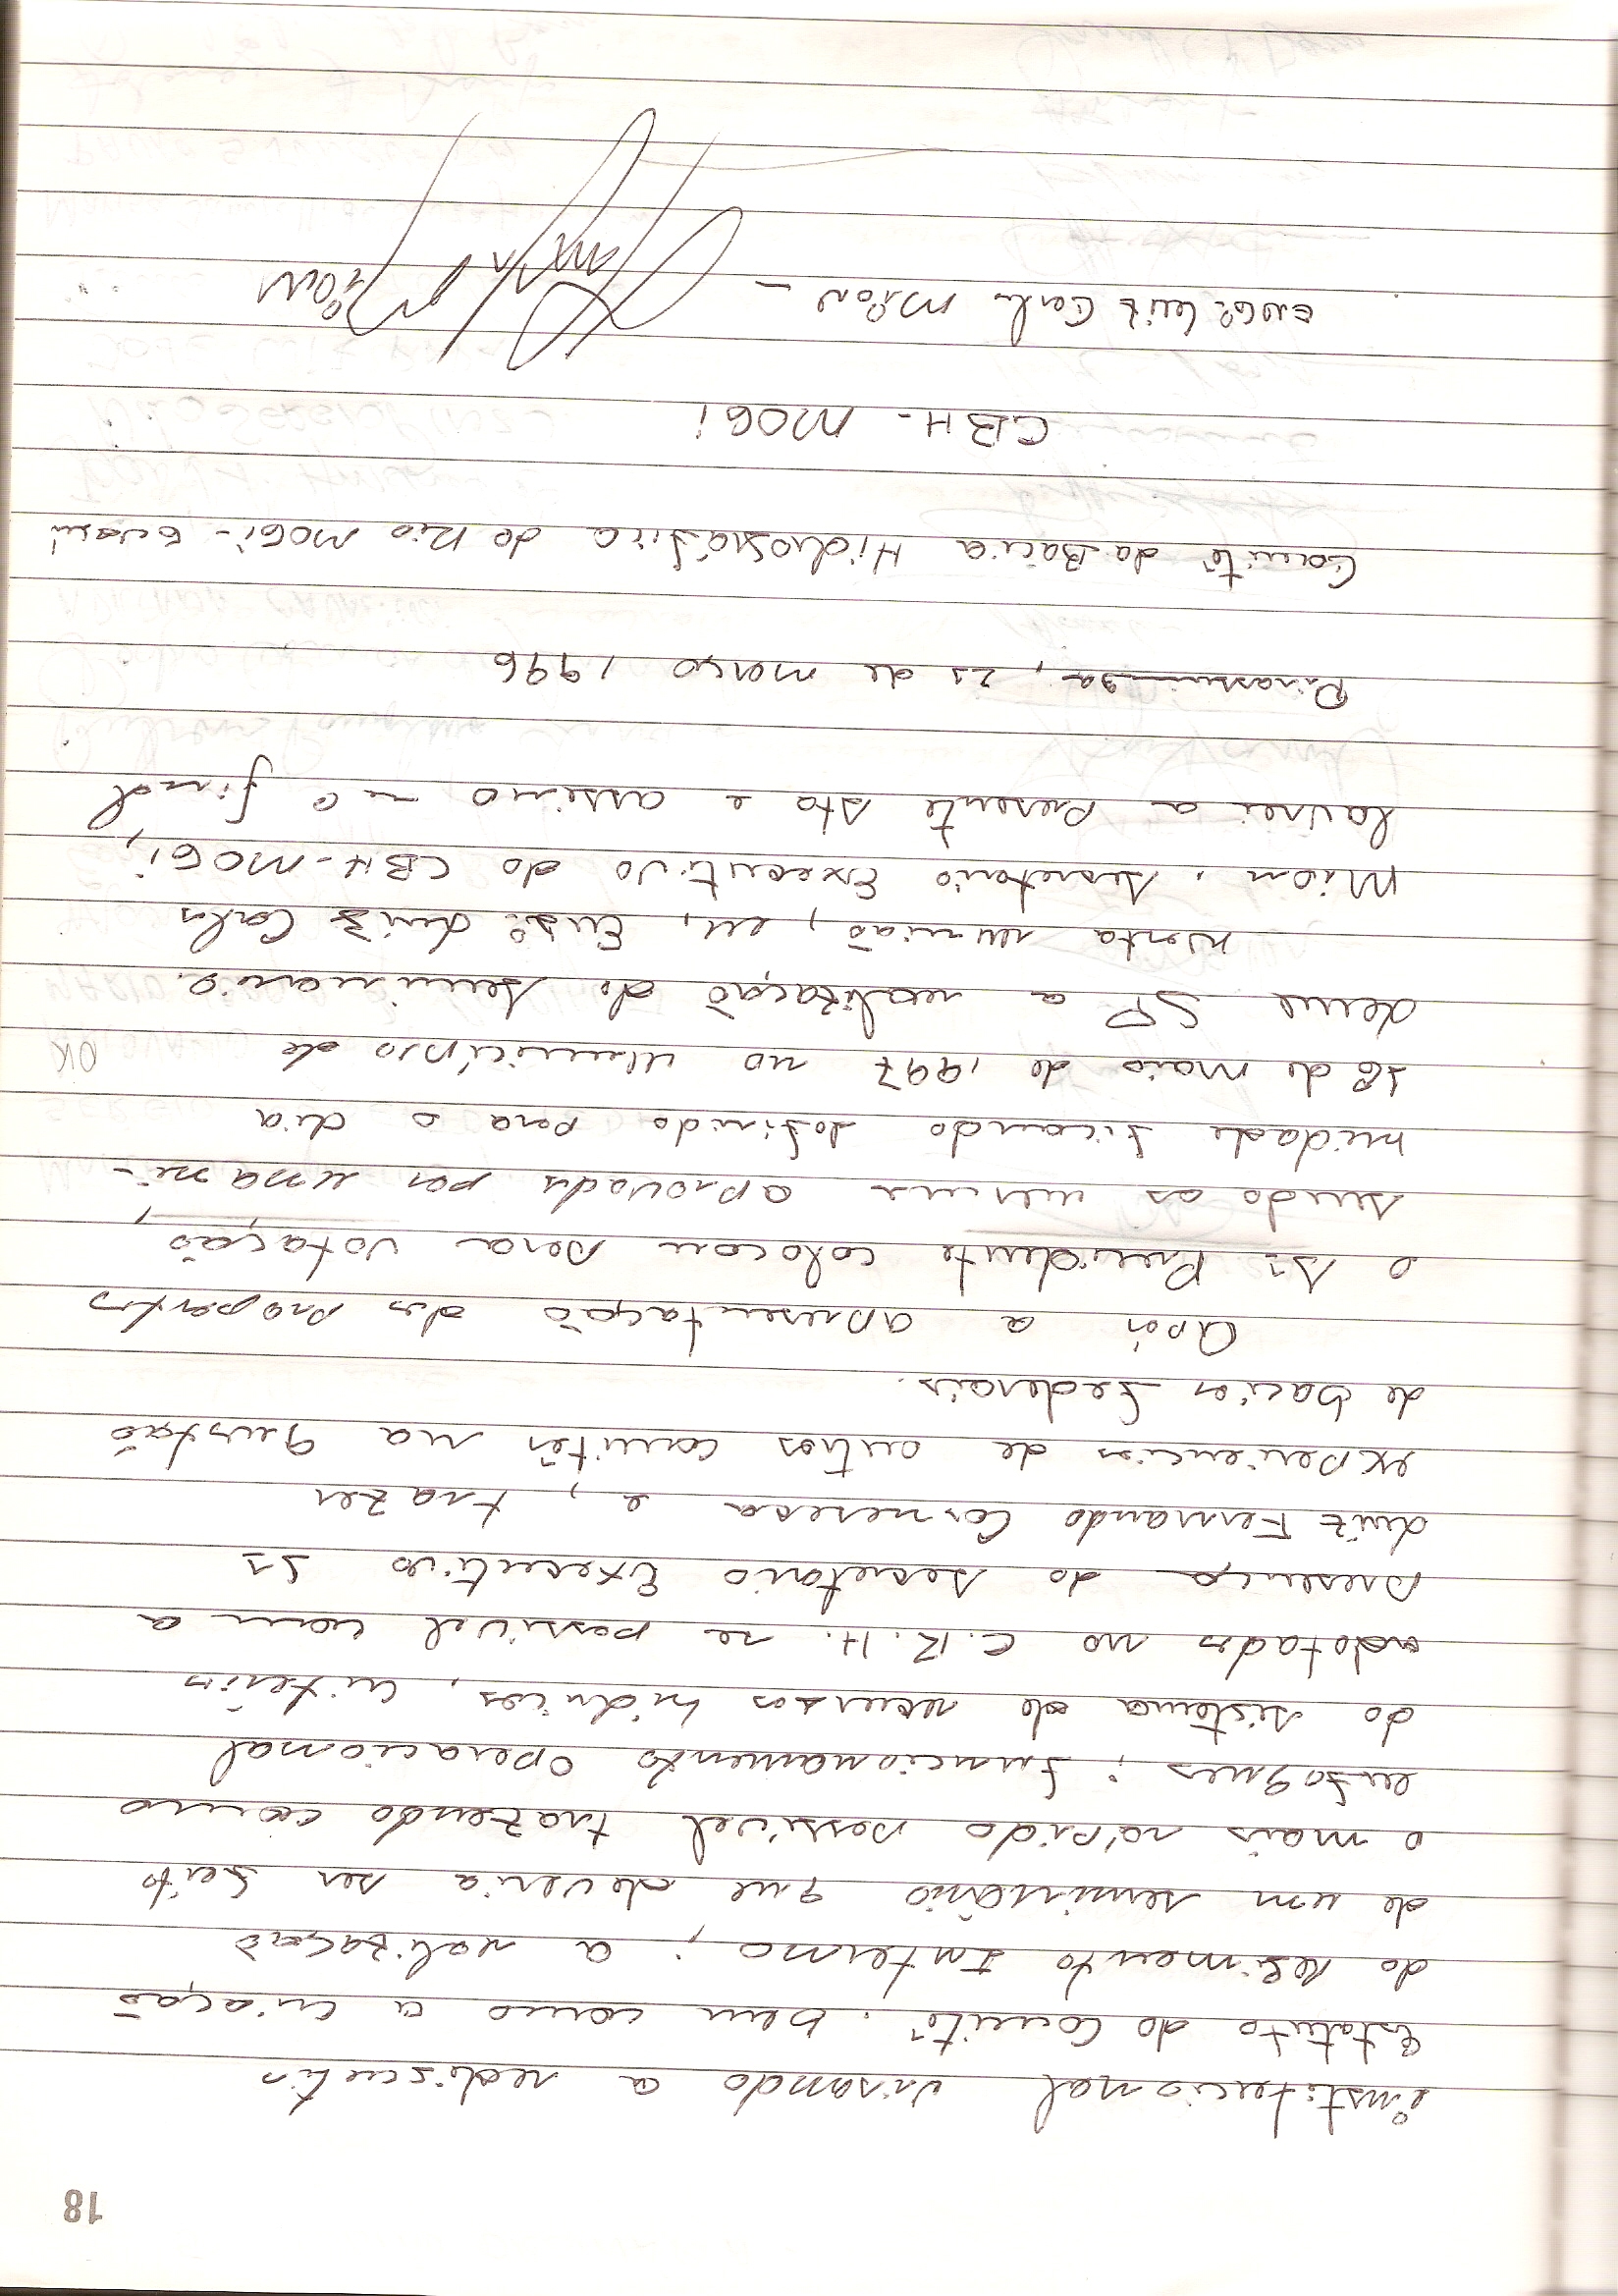 18
institucional visando a rediscutir
Estatuto do Comitê, bem como a criação
do Regimento Interno; a realização
de um seminário que deveria ser feito
o mais rápido possível trazendo como
enfoques: funcionamento operacional
do sistema de recursos hídricos, critérios
adotados no C.R.H. se possível com a
presença do Secretario Executivo Sr
Luiz Fernando Carneseca e, trazer
experiencias de outros comitês na questão
de bacias federais.
Após a apresentação das propostas
o Sr. Presidente colocou para votação,
sendo as mesmas aprovadas por unani-
midade ficando definido para o dia
18 de maio de 1997 no município de
Leme SP a realização do seminario.
OK
Nesta reunião, eu, Engº Luiz Carlos
Mion, Secretario Executivo do CBH-MOGI,
lavrei a presente Ata e assino no final
Pirassununga, 21 de março 1996
Comitê da Bacia Hidrográfica do Rio MOGI-Guaçú
CBH-MOGI
ENGº. Luiz Carlos Mion -